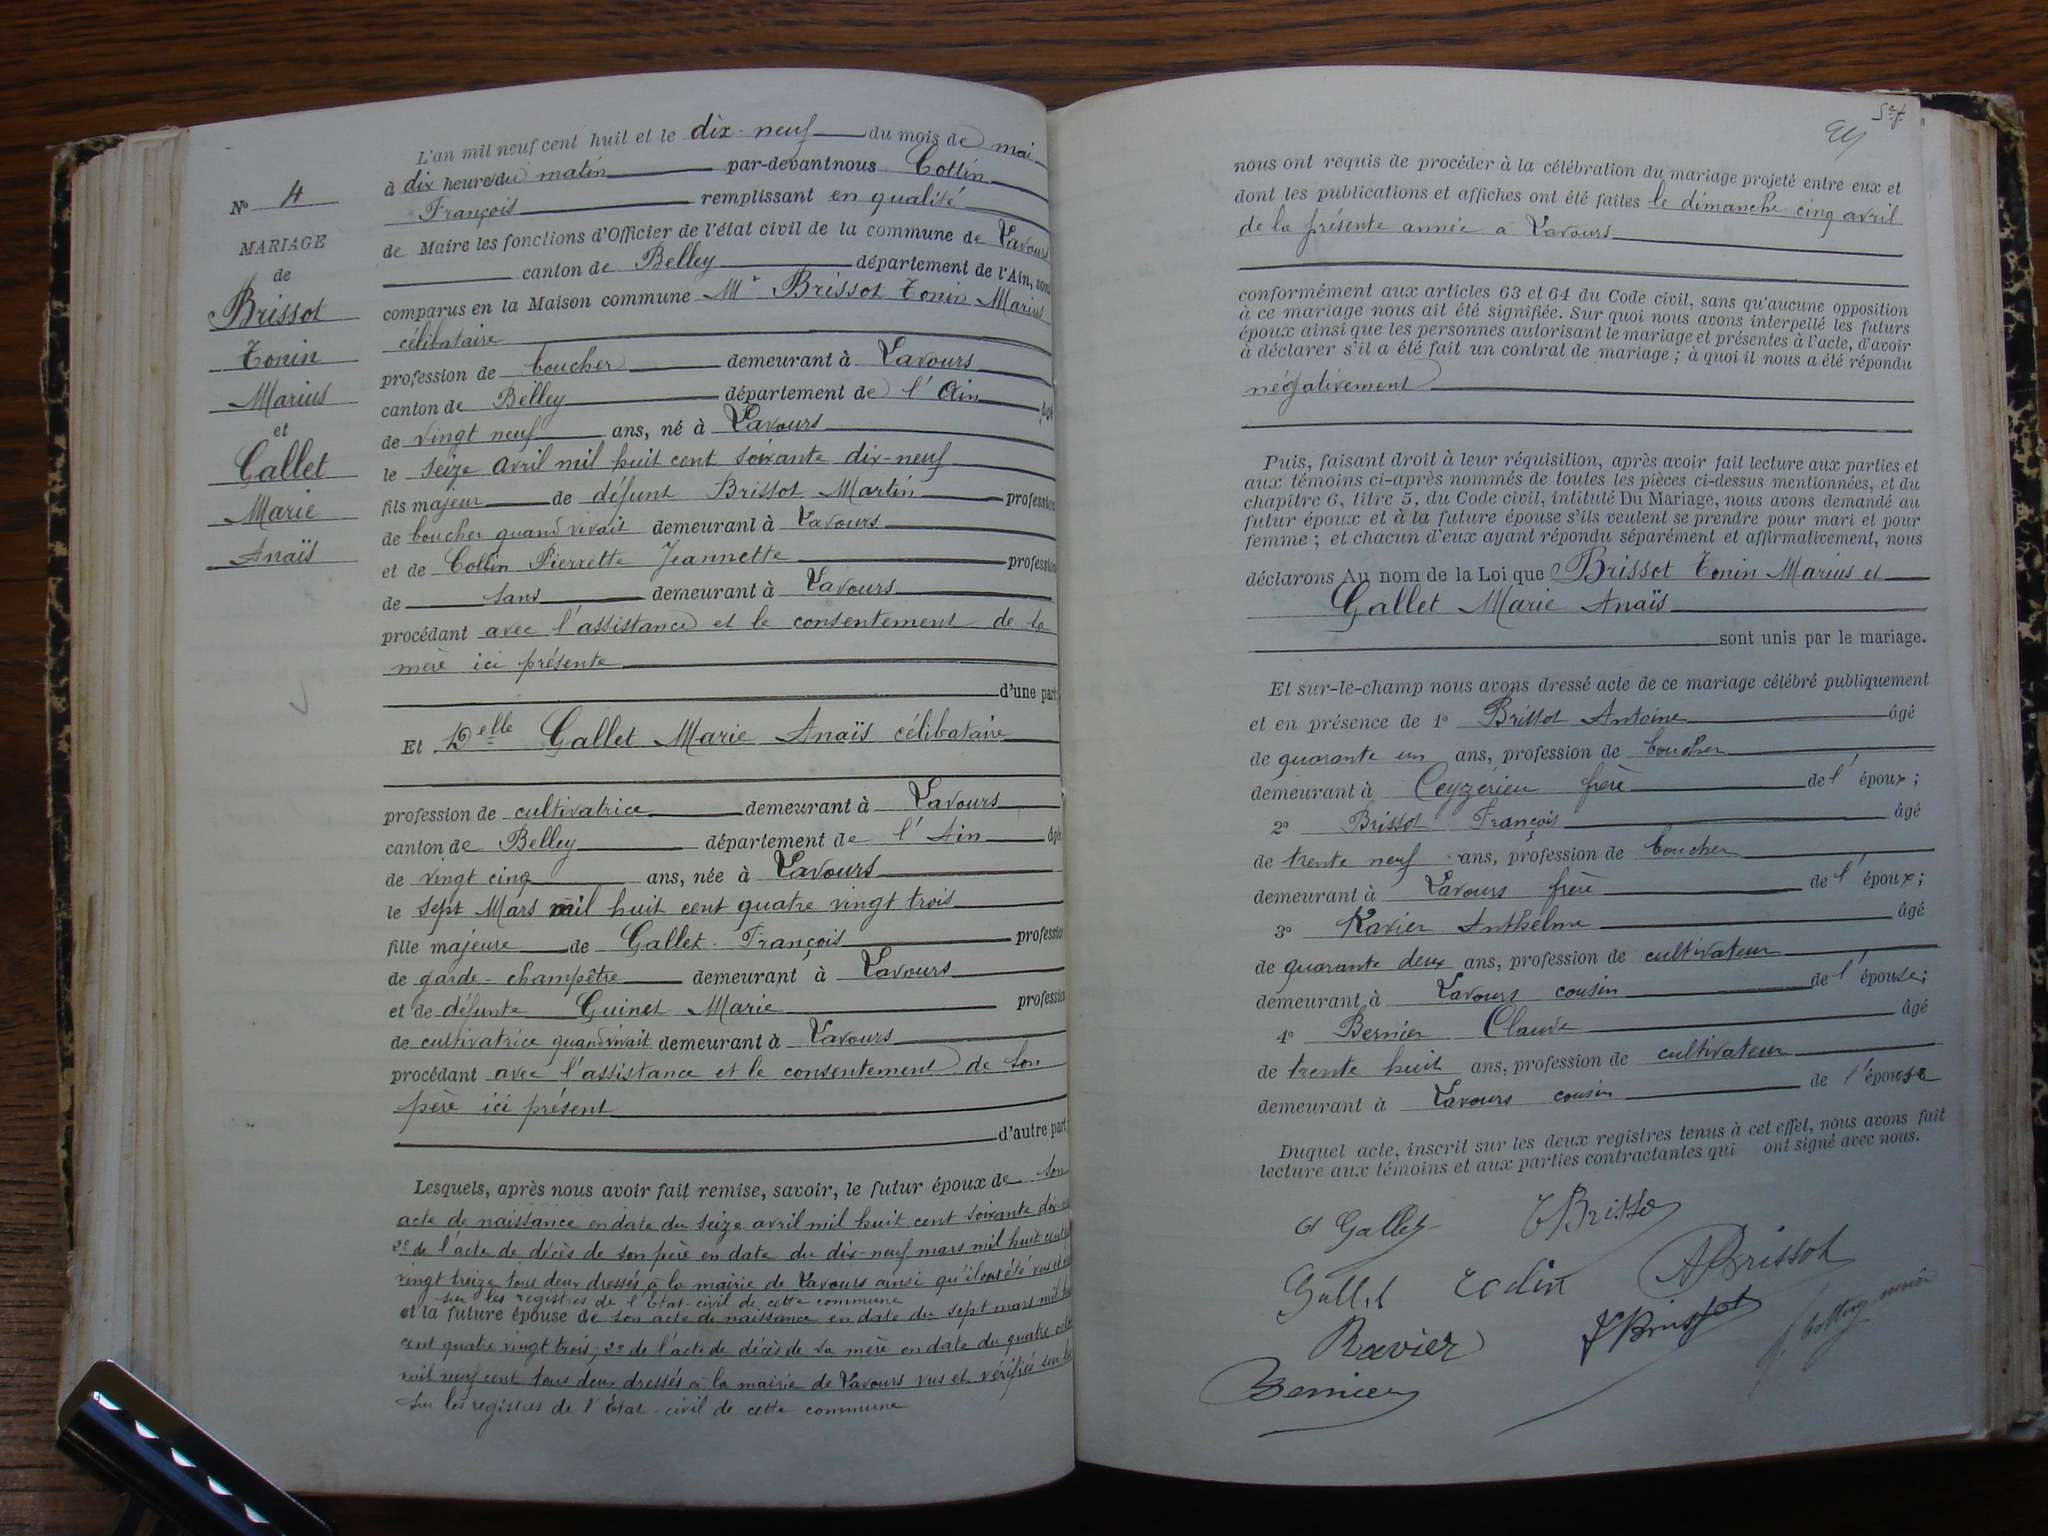 Nº 4
MARIAGE
de
Brissot
Tonin
Marius
et
Gallet
Marie
Anaïs
L'an mil neuf cent huit et le dix-neuf du mois de mai
à dix heures du matin par-devant nous Collin
François remplissant en qualité
de Maire les fonctions d'Officier de l'état civil de la commune de Lavours
canton de Belley département de l'Ain, sont
comparus en la Maison commune Mr Brissot Tonin Marius
célibataire
profession de boucher demeurant à Lavours
canton de Belley département de l'Ain âgé
de vingt neuf ans, né à Lavours
le seize avril mil huit cent soixante dix-neuf
fils majeur de défunt Brissot Martin profession
de boucher quand vivait demeurant à Lavours
et de Collin Pierrette Jeannette profession
de sans demeurant à Lavours
procédant avec l'assistance et le consentement de la
mère ici présente
d'une part
Et Delle Gallet Marie Anaïs célibataire
profession de cultivatrice demeurant à Lavours
canton de Belley département de l'Ain âgée
de vingt cinq ans, née à Lavours
le sept Mars mil huit cent quatre vingt trois
fille majeure de Gallet François profession
de garde-champêtre demeurant à Lavours
et de défunte Guinet Marie profession
de cultivatrice quand vivait demeurant à Lavours
procédant avec l'assistance et le consentement de son
père ici présent
d'autre part
Lesquels, après nous avoir fait remise, savoir, le futur époux de son
acte de naissance en date du seize avril mil huit cent soixante dix-
2º de l'acte de décès de son père en date du dix-neuf mars mil huit cent
vingt treize tous deux dressés à la mairie de Lavours ainsi qu'il ont été vus et
sur les registres de l'Etat-civil de cette commune
et la future épouse de son acte de naissance en date du sept mars mil
cent quatre vingt trois; 2º de l'acte de décès de sa mère en date du quatre
mil neuf cent tous deux dressés à la mairie de Lavours vus et vérifiés sur
sur les registres de l'État-civil de cette commune
nous ont requis de procéder à la célébration du mariage projeté entre eux et
dont les publications et affiches ont été faites le dimanche cinq avril
de la présente année à Lavours
conformément aux articles 63 et 64 du Code civil, sans qu'aucune opposition
à ce mariage nous ait été signifiée. Sur quoi nous avons interpellé les futurs
époux ainsi que les personnes autorisant le mariage et présentes à l'acte, d'avoir
à déclarer s'il a été fait un contrat de mariage; à quoi il nous a été répondu
négativement
Puis, faisant droit à leur réquisition, après avoir fait lecture aux parties et
aux témoins ci-après nommés de toutes les pièces ci-dessus mentionnées, et du
chapitre 6, titre 5, du Code civil, intitulé Du Mariage, nous avons demandé au
futur époux et à la future épouse s'ils veulent se prendre pour mari et pour
femme; et chacun d'eux ayant répondu séparément et affirmativement, nous
déclarons Au nom de la Loi que Brissot Tonin Marius et
Gallet Marie Anaïs
sont unis par le mariage.
Et sur-le-champ nous avons dressé acte de ce mariage célébré publiquement
et en présence de 1º Brissot Antoine âgé
de quarante un ans, profession de boucher
demeurant à Ceyzérieu frère de l'époux;
2º Brissot François âgé
de trente neuf ans, profession de boucher
demeurant à Lavours frère de l'époux;
3º Ravier Anthelme âgé
de quarante deux ans, profession de cultivateur
demeurant à Lavours cousin de l'épouse;
4º Bernier Claude âgé
de trente huit ans, profession de cultivateur
demeurant à Lavours cousin de l'épouse
Duquel acte, inscrit sur les deux registres tenus à cet effet, nous avons fait
lecture aux témoins et aux parties contractantes qui ont signé avec nous.
Gallet T Brisso
Gallet A Brissot
Ravier F Brissot
Bernier